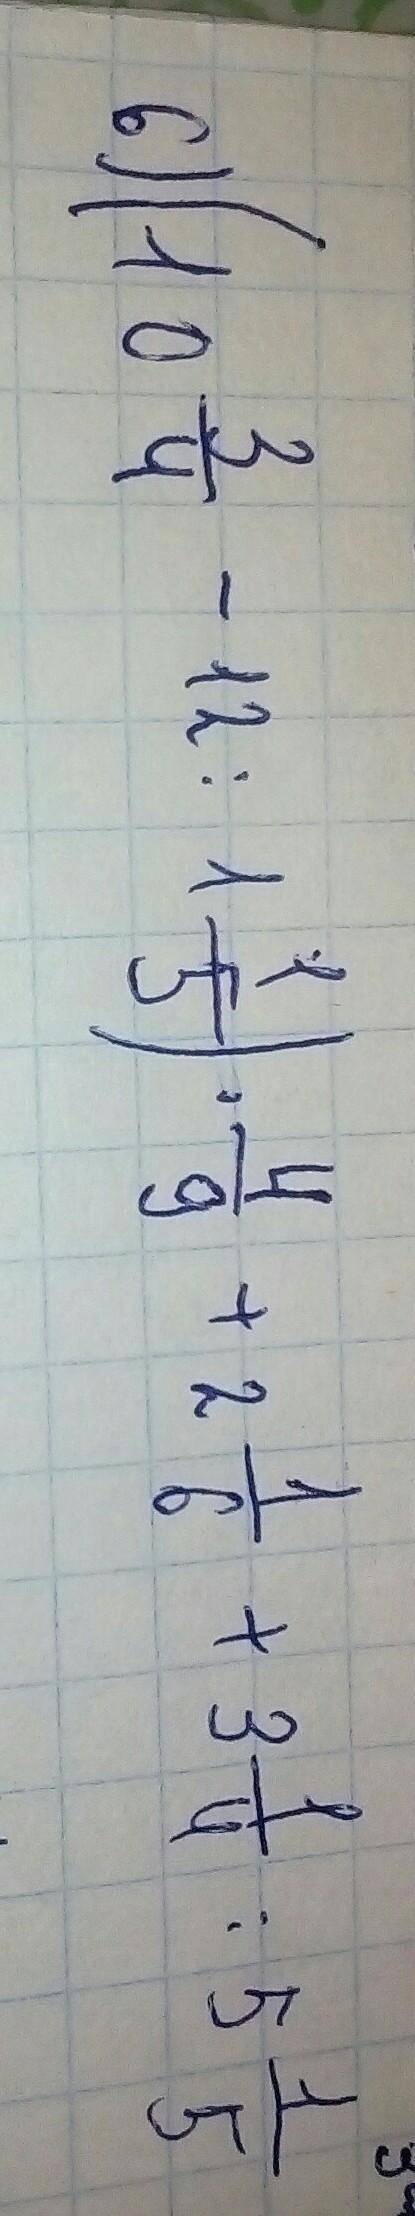 6) (10 3/4 - 12 : 1 1/5) · 4/9 + 2 1/6 + 3 1/4 : 5 1/5